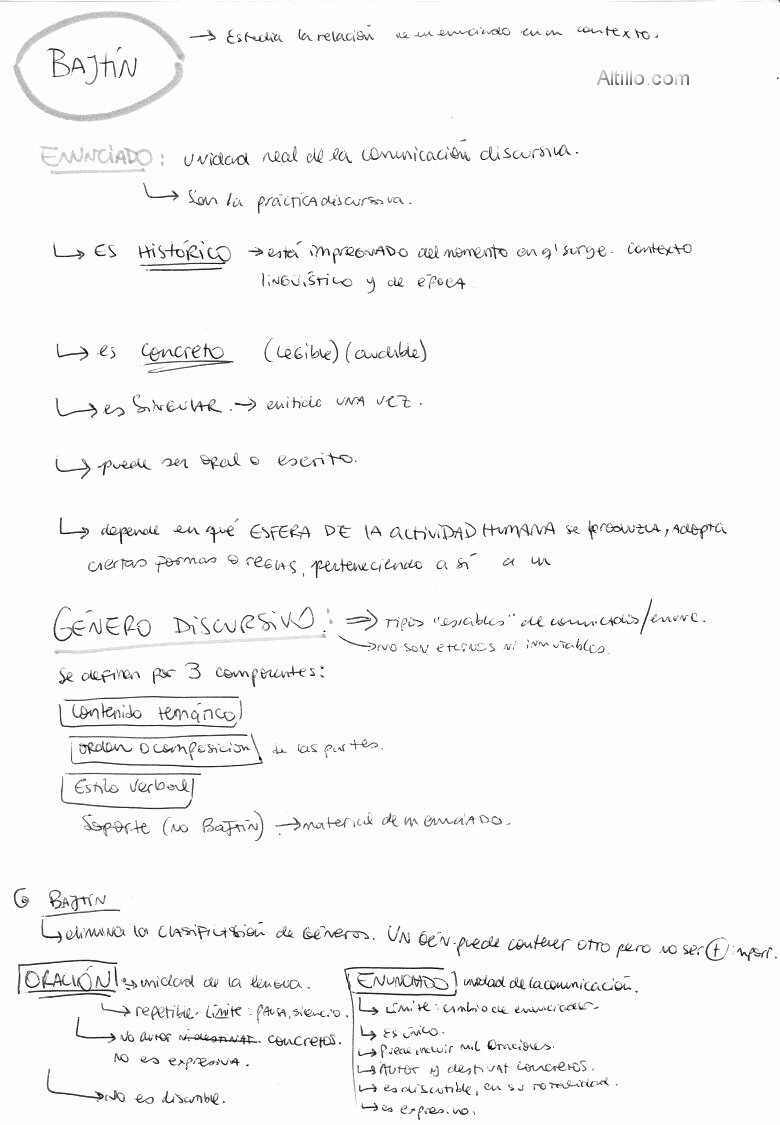 BAJTÍN → Estudia la relación de un enunciado en un contexto.
Altillo.com
ENUNCIADO: unidad real de la comunicación discursiva.
↳ Son la práctica discursiva.
↳ ES HISTÓRICO → está impregnado del momento en q' surge. contexto
lingüístico y de época
↳ es concreto (legible) (audible)
↳ es SINGULAR. → emitido UNA VEZ.
↳ puede ser oral o escrito.
↳ depende en qué ESFERA DE LA ACTIVIDAD HUMANA se produzca, adopta
ciertas formas o reglas, perteneciendo a sí a un
GÉNERO DISCURSIVO: ⇒ tipos "estables" de enunciados/
→ no son eternos ni inmutables.
Se definen por 3 componentes:
Contenido temático
orden o composición de las partes.
Estilo verbal
Soporte (no BAJTÍN) → material de un enunciado.
BAJTÍN
↳ elimina la clasificación de géneros. UN GÉN. puede contener otro pero no ser (+) import.
ORACIÓN → unidad de la lengua.
↳ repetible. Límite: pausa, silencio.
↳ no autor ni destinat. concretos.
no es expresiva.
→ No es discutible.
ENUNCIADO unidad de la comunicación.
↳ Límite: cambio de enunciador.
↳ es único.
↳ Puede incluir mil oraciones.
↳ Autor y destinat concretos.
↳ es discutible, en su totalidad.
↳ es expresivo.